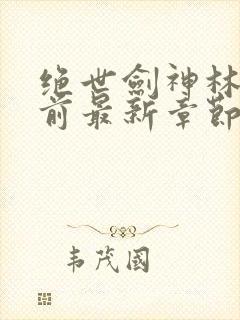 绝世劍神林
前最新章節
韦茂國